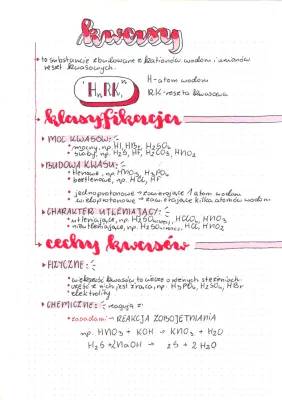 kwasy
to substancje zbudowane z kationów wodoru i anionów
reszt kwasowych.
HnRKn
H-atom wodoru
RK-reszta kwasowa
klasyfikacja
MOC KWASÓW:
mocny, np. HI, HBr, H2SO4
słaby, np. H2S, HF, H2CO3, HNO2
BUDOWA KWASU:
tlenowe, np. HNO3, H3PO4
beztlenowe, np. HCl, HF
jednoprotonowe → zawierające 1 atom wodoru
wieloprotonowe → zawierające kilka atomów wodoru
CHARAKTER UTLENIAJĄCY:
utleniające, np. H2SO4, HClO4, HNO3
nieutleniające, np. H2SO4, HCl, HNO2
cechy kwasów
FIZYCZNE:
większość kwasów to ciecze o różnych stężeniach
część z nich jest żrąca, np. H3PO4, H2SO4, HBr
elektrolity
CHEMICZNE: reagują z:
zasadami → REAKCJA ZOBOJĘTNIANIA
np. HNO3 + KOH → KNO3 + H2O
H2S + 2NaOH → 2S + 2H2O